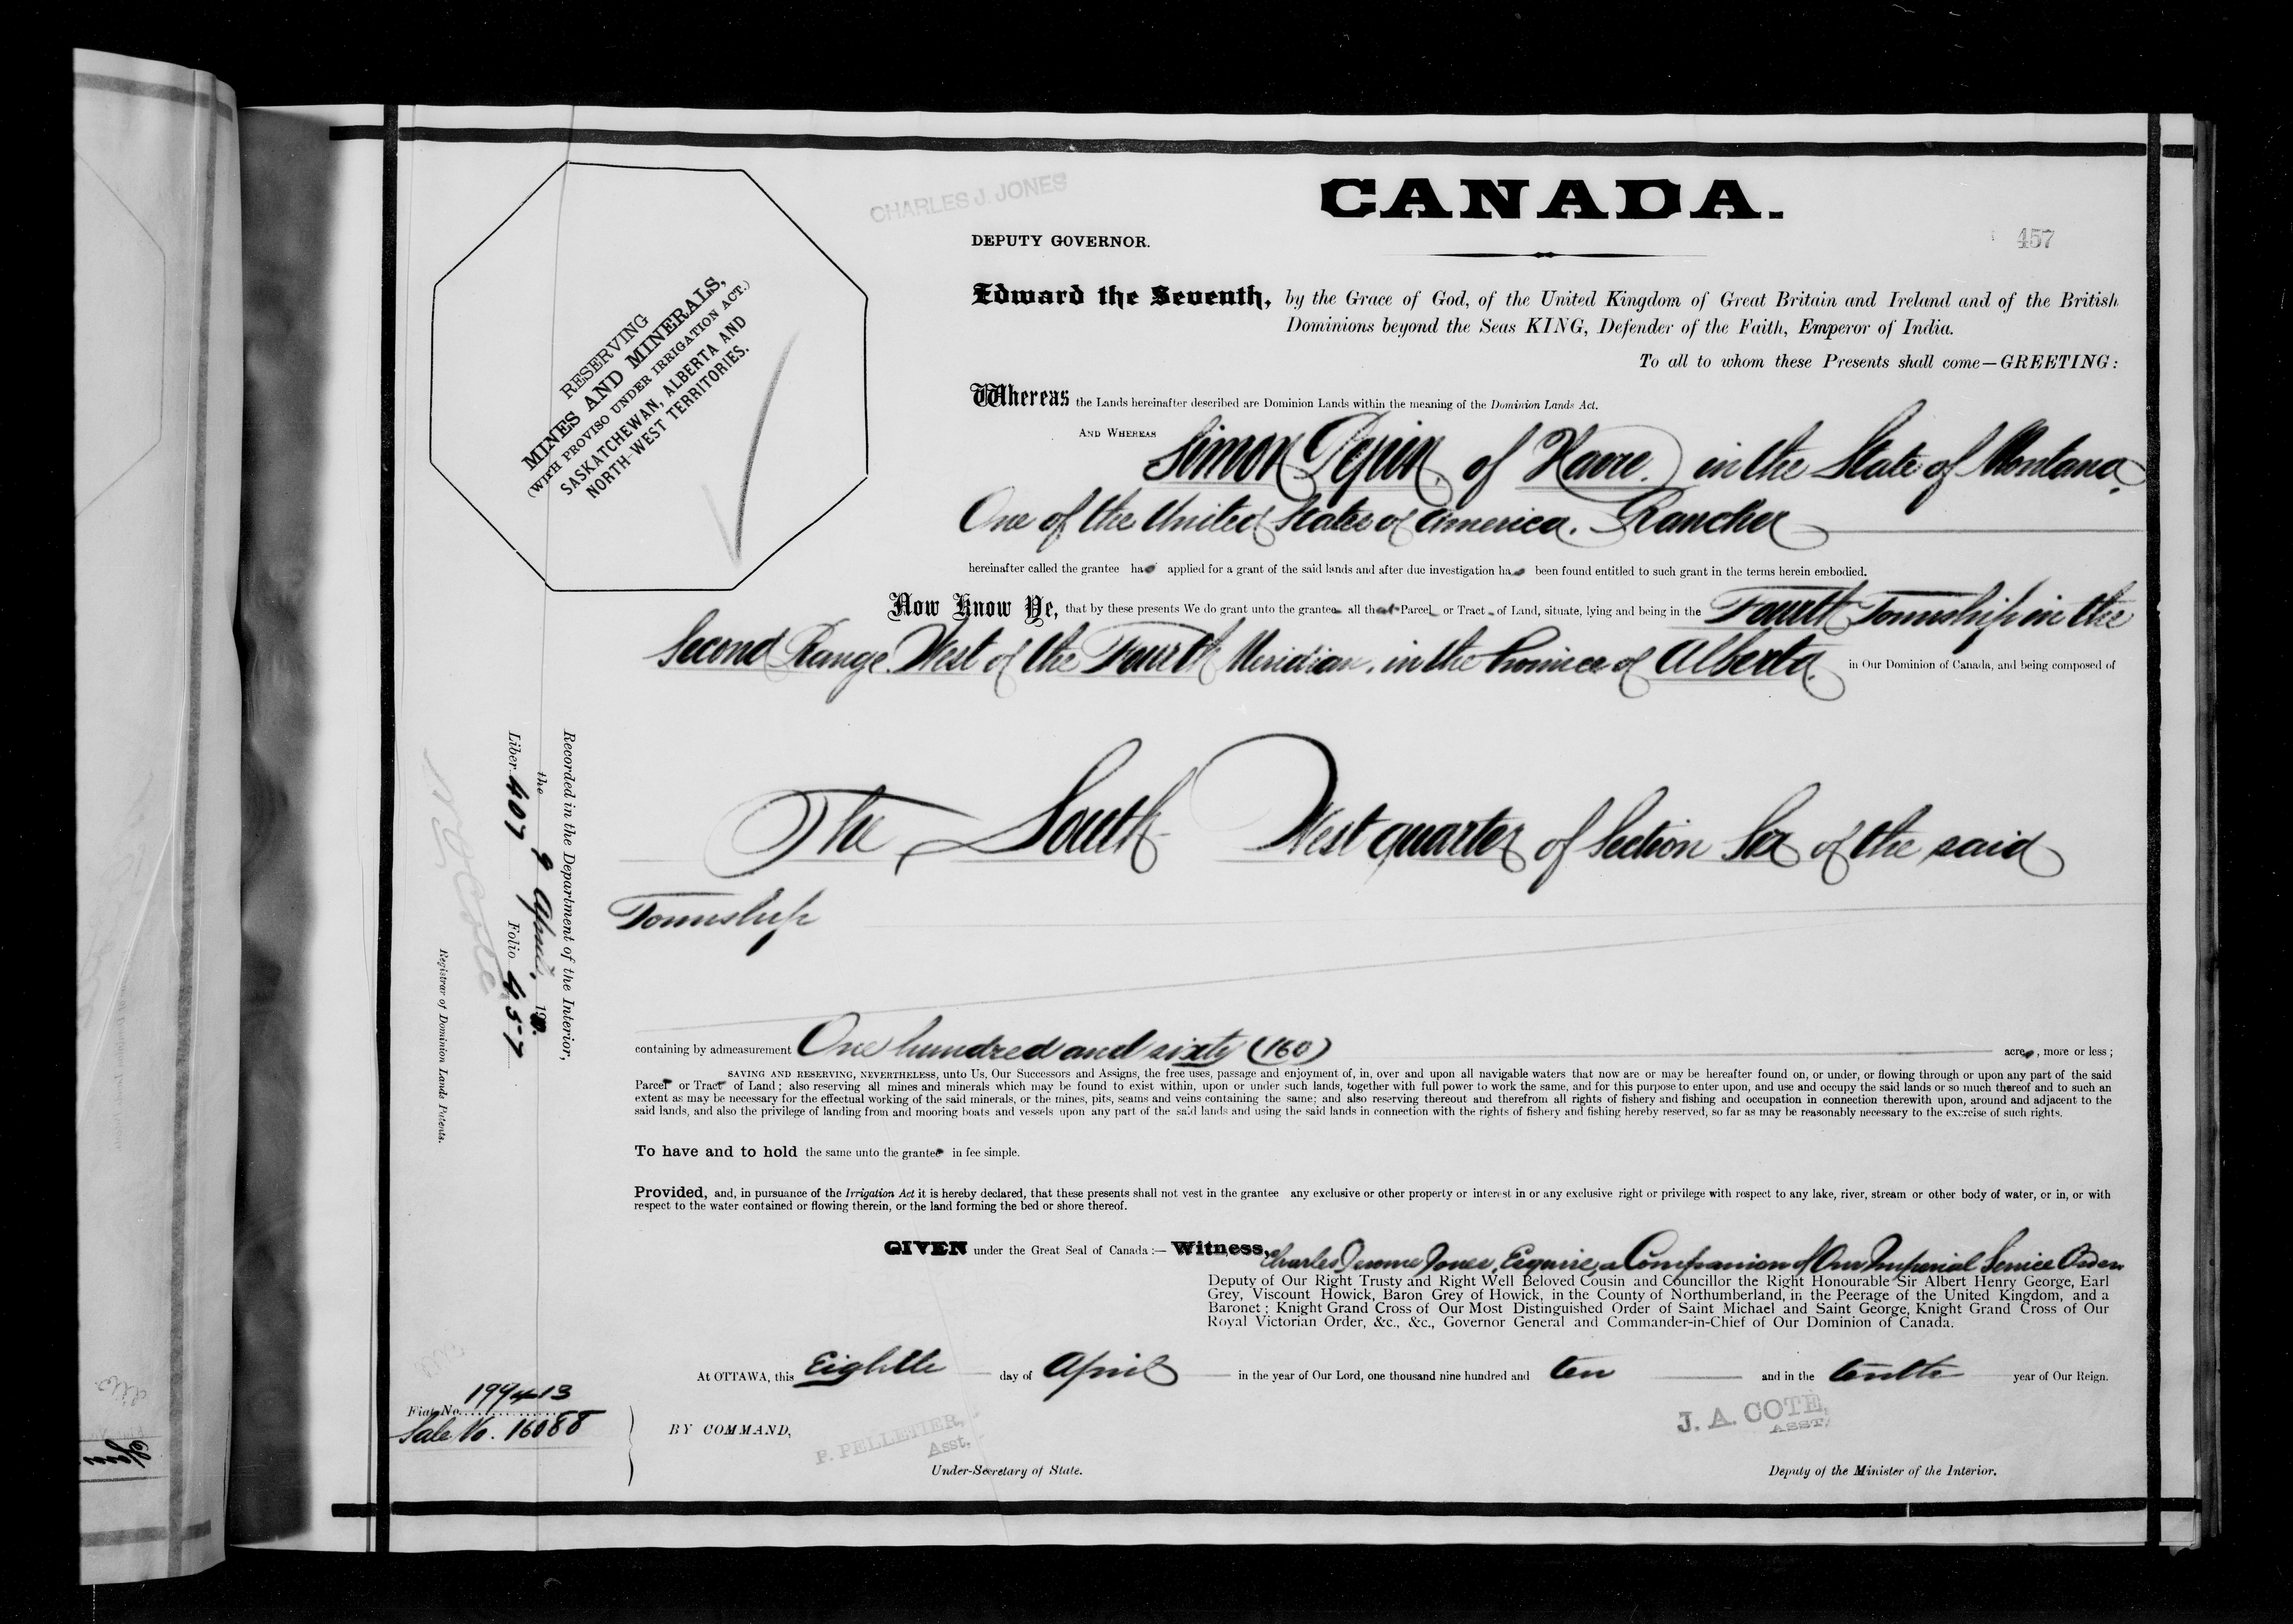 CANADA.
CHARLES J. JONES
DEPUTY GOVERNOR.
457
RESERVING
MINES AND MINERALS,
(WITH PROVISO UNDER IRRIGATION ACT.)
SASKATCHEWAN, ALBERTA AND
NORTH-WEST TERRITORIES.
Edward the Seventh, by the Grace of God, of the United Kingdom of Great Britain and Ireland and of the British
Dominions beyond the Seas KING, Defender of the Faith, Emperor of India.
To all to whom these Presents shall come—GREETING:
Whereas the Lands hereinafter described are Dominion Lands within the meaning of the Dominion Lands Act.
AND WHEREAS Simon Pepin, of Havre, in the State of Montana,
One of the United States of America, Rancher
hereinafter called the grantee has applied for a grant of the said lands and after due investigation has been found entitled to such grant in the terms herein embodied.
Now Know Ye, that by these presents We do grant unto the grantee all that Parcel or Tract of Land, situate, lying and being in the Fourth Township in the
Second Range West of the Fourth Meridian, in the Province of Alberta, in Our Dominion of Canada, and being composed of
The South West quarter of Section Six of the said
Township
containing by admeasurement One hundred and sixty (160) acres, more or less;
SAVING AND RESERVING, NEVERTHELESS, unto Us, Our Successors and Assigns, the free uses, passage and enjoyment of, in, over and upon all navigable waters that now are or may be hereafter found on, or under, or flowing through or upon any part of the said
Parcel or Tract of Land; also reserving all mines and minerals which may be found to exist within, upon or under such lands, together with full power to work the same, and for this purpose to enter upon, and use and occupy the said lands or so much thereof and to such an
extent as may be necessary for the effectual working of the said minerals, or the mines, pits, seams and veins containing the same; and also reserving thereout and therefrom all rights of fishery and fishing and occupation in connection therewith upon, around and adjacent to the
said lands, and also the privilege of landing from and mooring boats and vessels upon any part of the said lands and using the said lands in connection with the rights of fishery and fishing hereby reserved, so far as may be reasonably necessary to the exercise of such rights.
To have and to hold the same unto the grantee in fee simple.
Provided, and, in pursuance of the Irrigation Act it is hereby declared, that these presents shall not vest in the grantee any exclusive or other property or interest in or any exclusive right or privilege with respect to any lake, river, stream or other body of water, or in, or with
respect to the water contained or flowing therein, or the land forming the bed or shore thereof.
GIVEN under the Great Seal of Canada:— Witness, Charles Jerome Jones, Esquire, a Companion of Our Imperial Service Order
Deputy of Our Right Trusty and Right Well Beloved Cousin and Councillor the Right Honourable Sir Albert Henry George, Earl
Grey, Viscount Howick, Baron Grey of Howick, in the County of Northumberland, in the Peerage of the United Kingdom, and a
Baronet; Knight Grand Cross of Our Most Distinguished Order of Saint Michael and Saint George, Knight Grand Cross of Our
Royal Victorian Order, &c., &c., Governor General and Commander-in-Chief of Our Dominion of Canada.
At OTTAWA, this Eighth day of April in the year of Our Lord, one thousand nine hundred and ten and in the tenth year of Our Reign.
Fiat No. 199413
Sale No. 16088
BY COMMAND,
P. PELLETIER,
Asst.
Under-Secretary of State.
J. A. COTE,
ASST.
Deputy of the Minister of the Interior.
Recorded in the Department of the Interior,
the 9 April, 19
Liber 407 Folio 457
Registrar of Dominion Lands Patents.